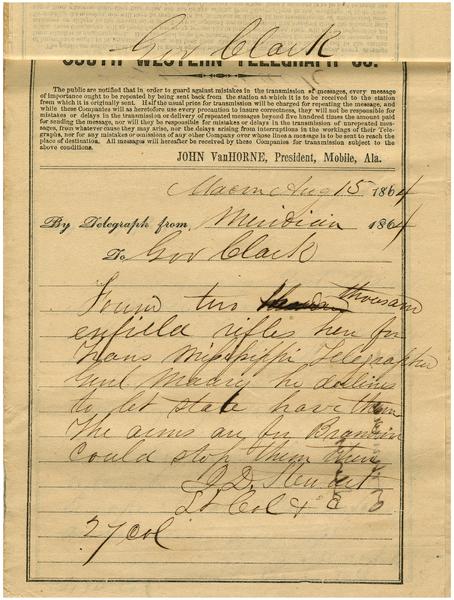 Gov Clark
SOUTH WESTERN TELEGRAPH CO.
The public are notified that in order to guard against mistakes in the transmission of messages, every message
of importance ought to be repeated by being sent back from the station at which it is to be received to the station
from which it is originally sent. Half the usual price for transmission will be charged for repeating the message, and
while these Companies will as heretofore use every precaution to insure correctness, they will not be responsible for
mistakes or delays in the transmission or delivery of repeated messages beyond five hundred times the amount paid
for sending the message, nor will they be responsible for mistakes or delays in the transmission of unrepeated mes-
sages, from whatever cause they may arise, nor the delays arising from interruptions in the workings of their Tele-
graphs, nor for any mistakes or omission of any other Company over whose lines a message is to be sent to reach the
place of destination. All messages will hereafter be received by these Companies for transmission subject to the
above conditions.
JOHN VanHORNE, President, Mobile, Ala.
Macon Aug 15 1864
By Telegraph from Meridian 1864
To Gov Clark
Found two thousand
enfield rifles here for
Trans Mississippi Telegraphed
Genl Maury he declines
to let state have them
The arms are for Brandon
could stop them there
J. D. Stewart
Lt Col &c
27 col